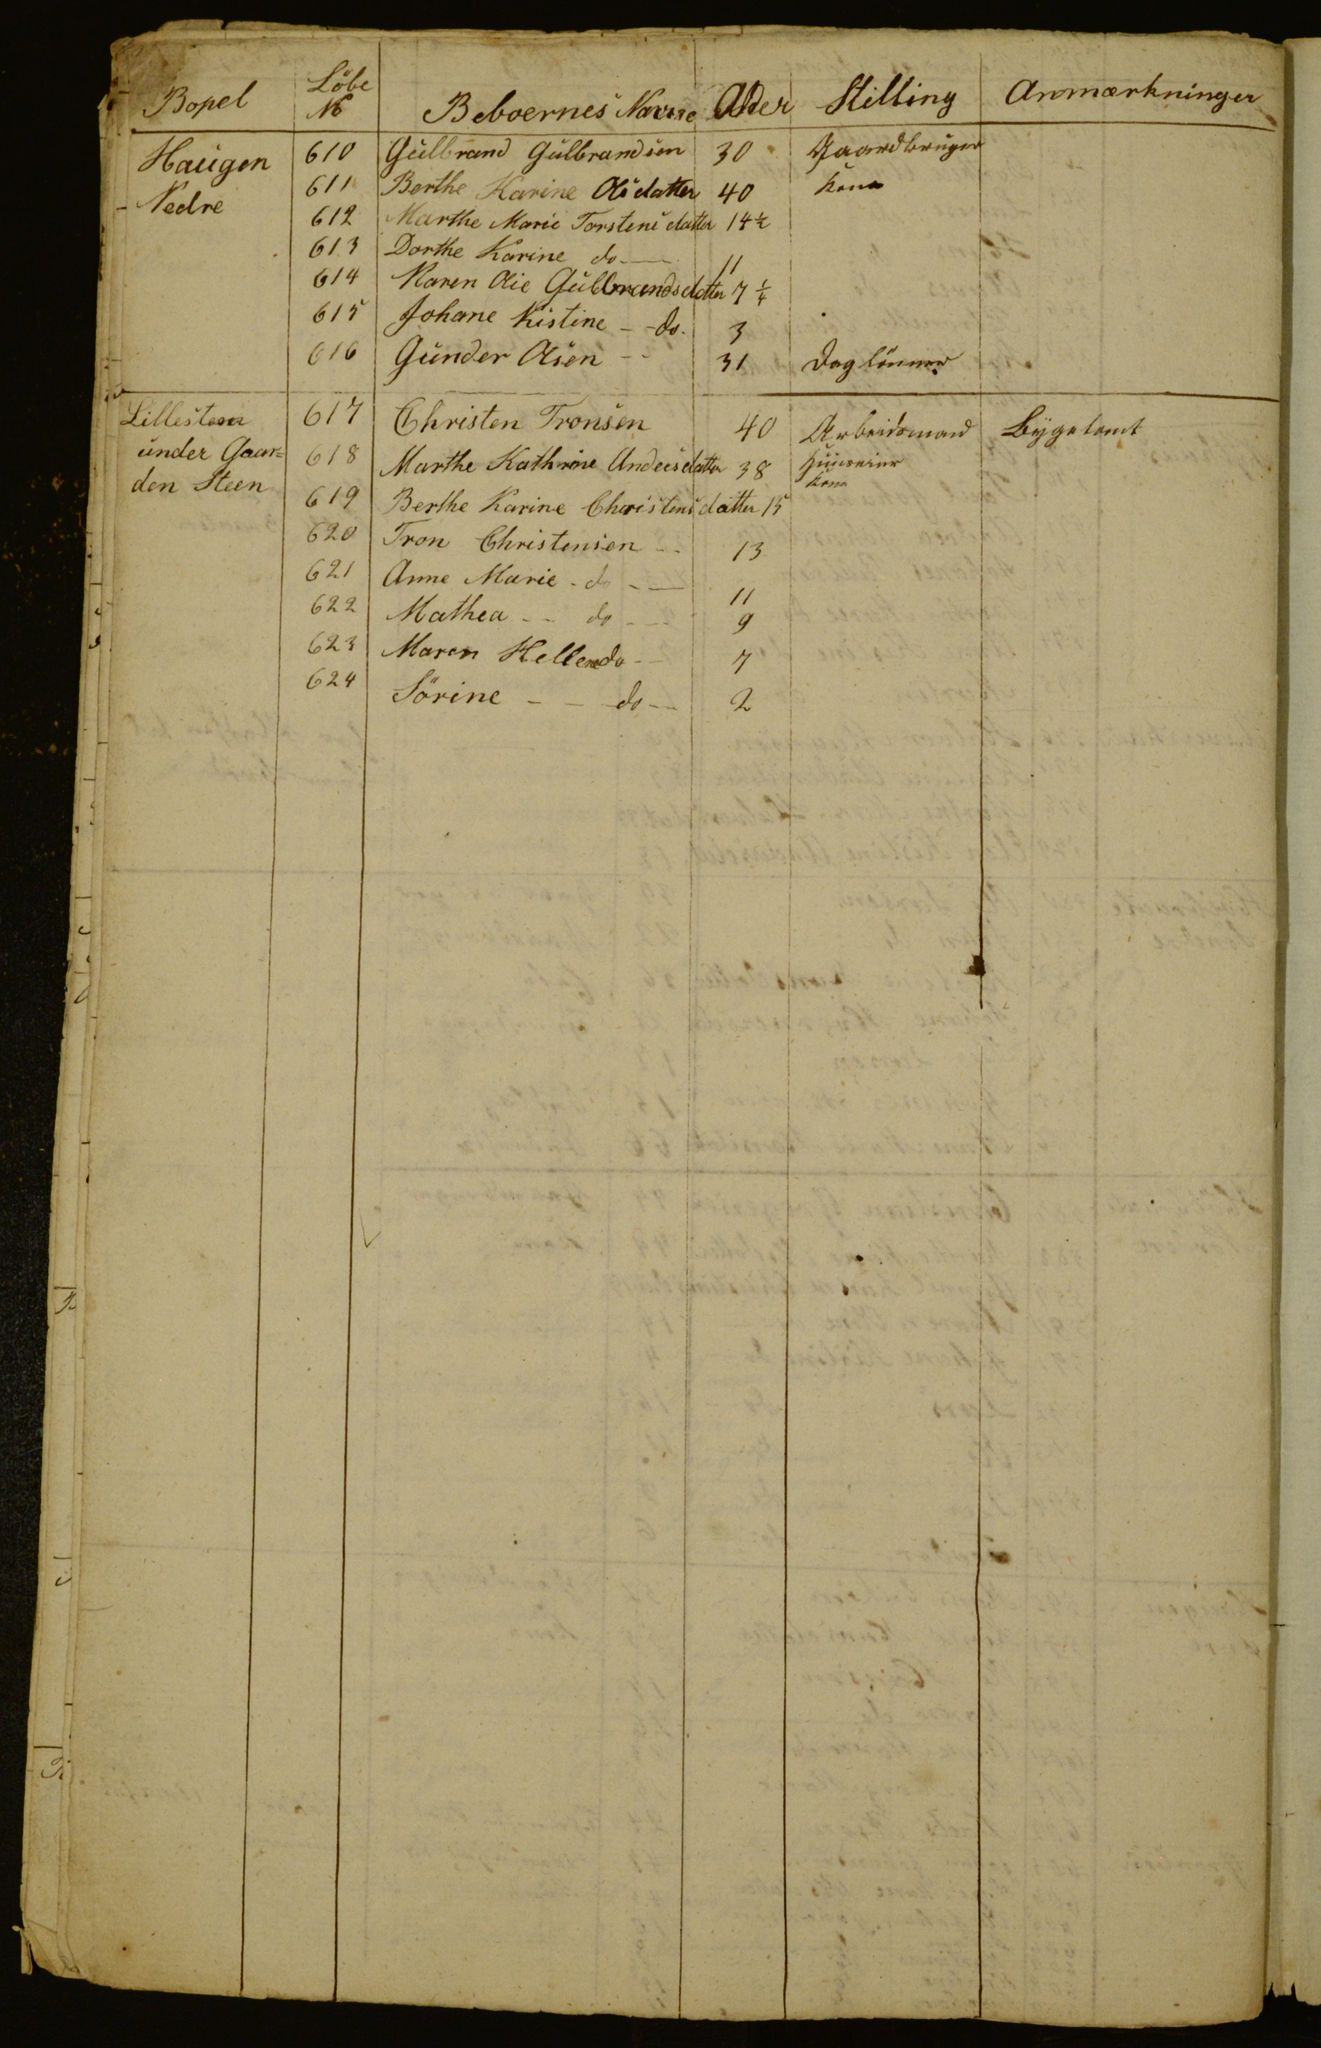 Bopel Löbe No Beboernes Navne Alder Stilling Anmærkninger
Haugen 610 Gulbrand Gulbrandsen 30 Gaardbruger
Nedre 611 Berthe Karine Olsdatter 40 Kone
612 Marthe Marie Torstensdatter 14½
613 Dorthe Karine do 11
614 Karen Olie Gulbrandsdatter 7¼
615 Johane Kistine - do. 3
616 Gunder Olsen 31 Daglönner
Lillesteen 617 Christen Tronsen 40 Arbeidsmand Bygslemt
under Gaar= 618 Marthe Kathrine Andersdatter 38 Kone
den Steen 619 Berthe Karine Christensdatter 15
620 Tron Christensen 13
621 Anne Marie - do 11
622 Mathea - - do 9
623 Maren Hellene do 7
624 Sörine - - do 2